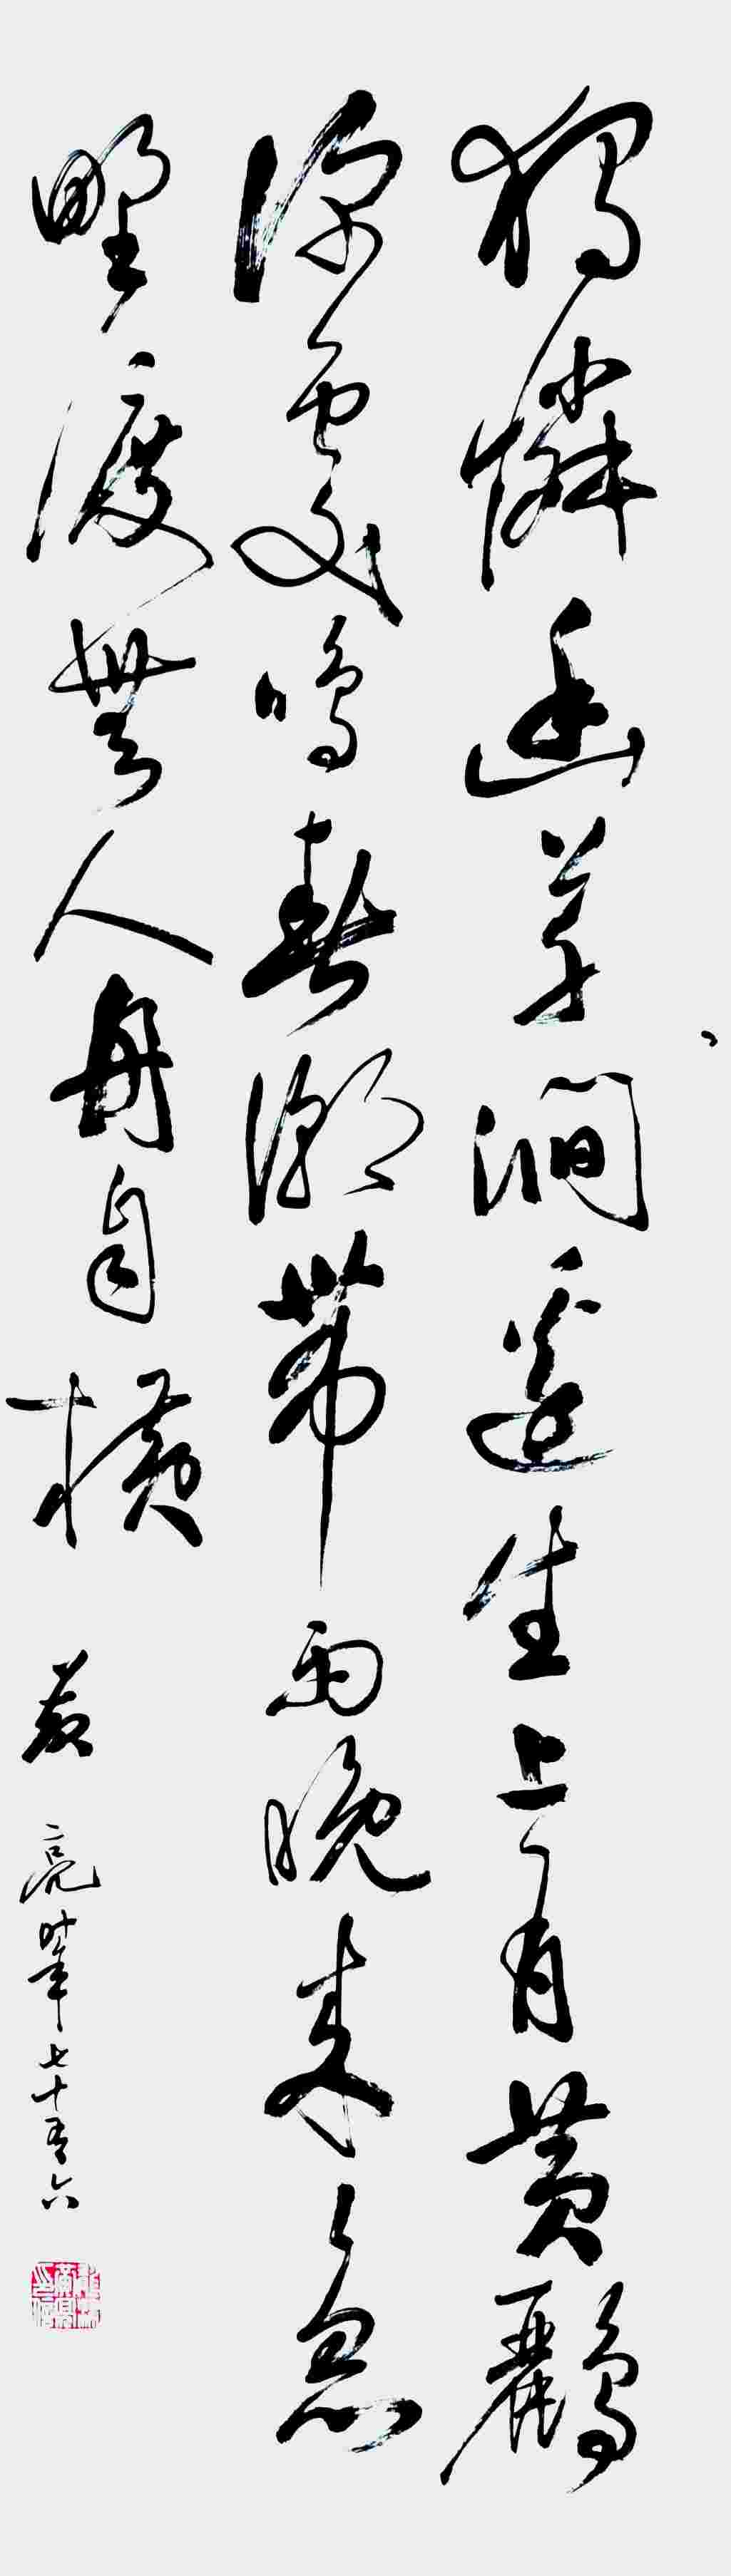 獨憐幽草澗邊生上有黃鸝
深處鳴春潮帶雨晚來急
野渡無人舟自橫
亮時年七十有六